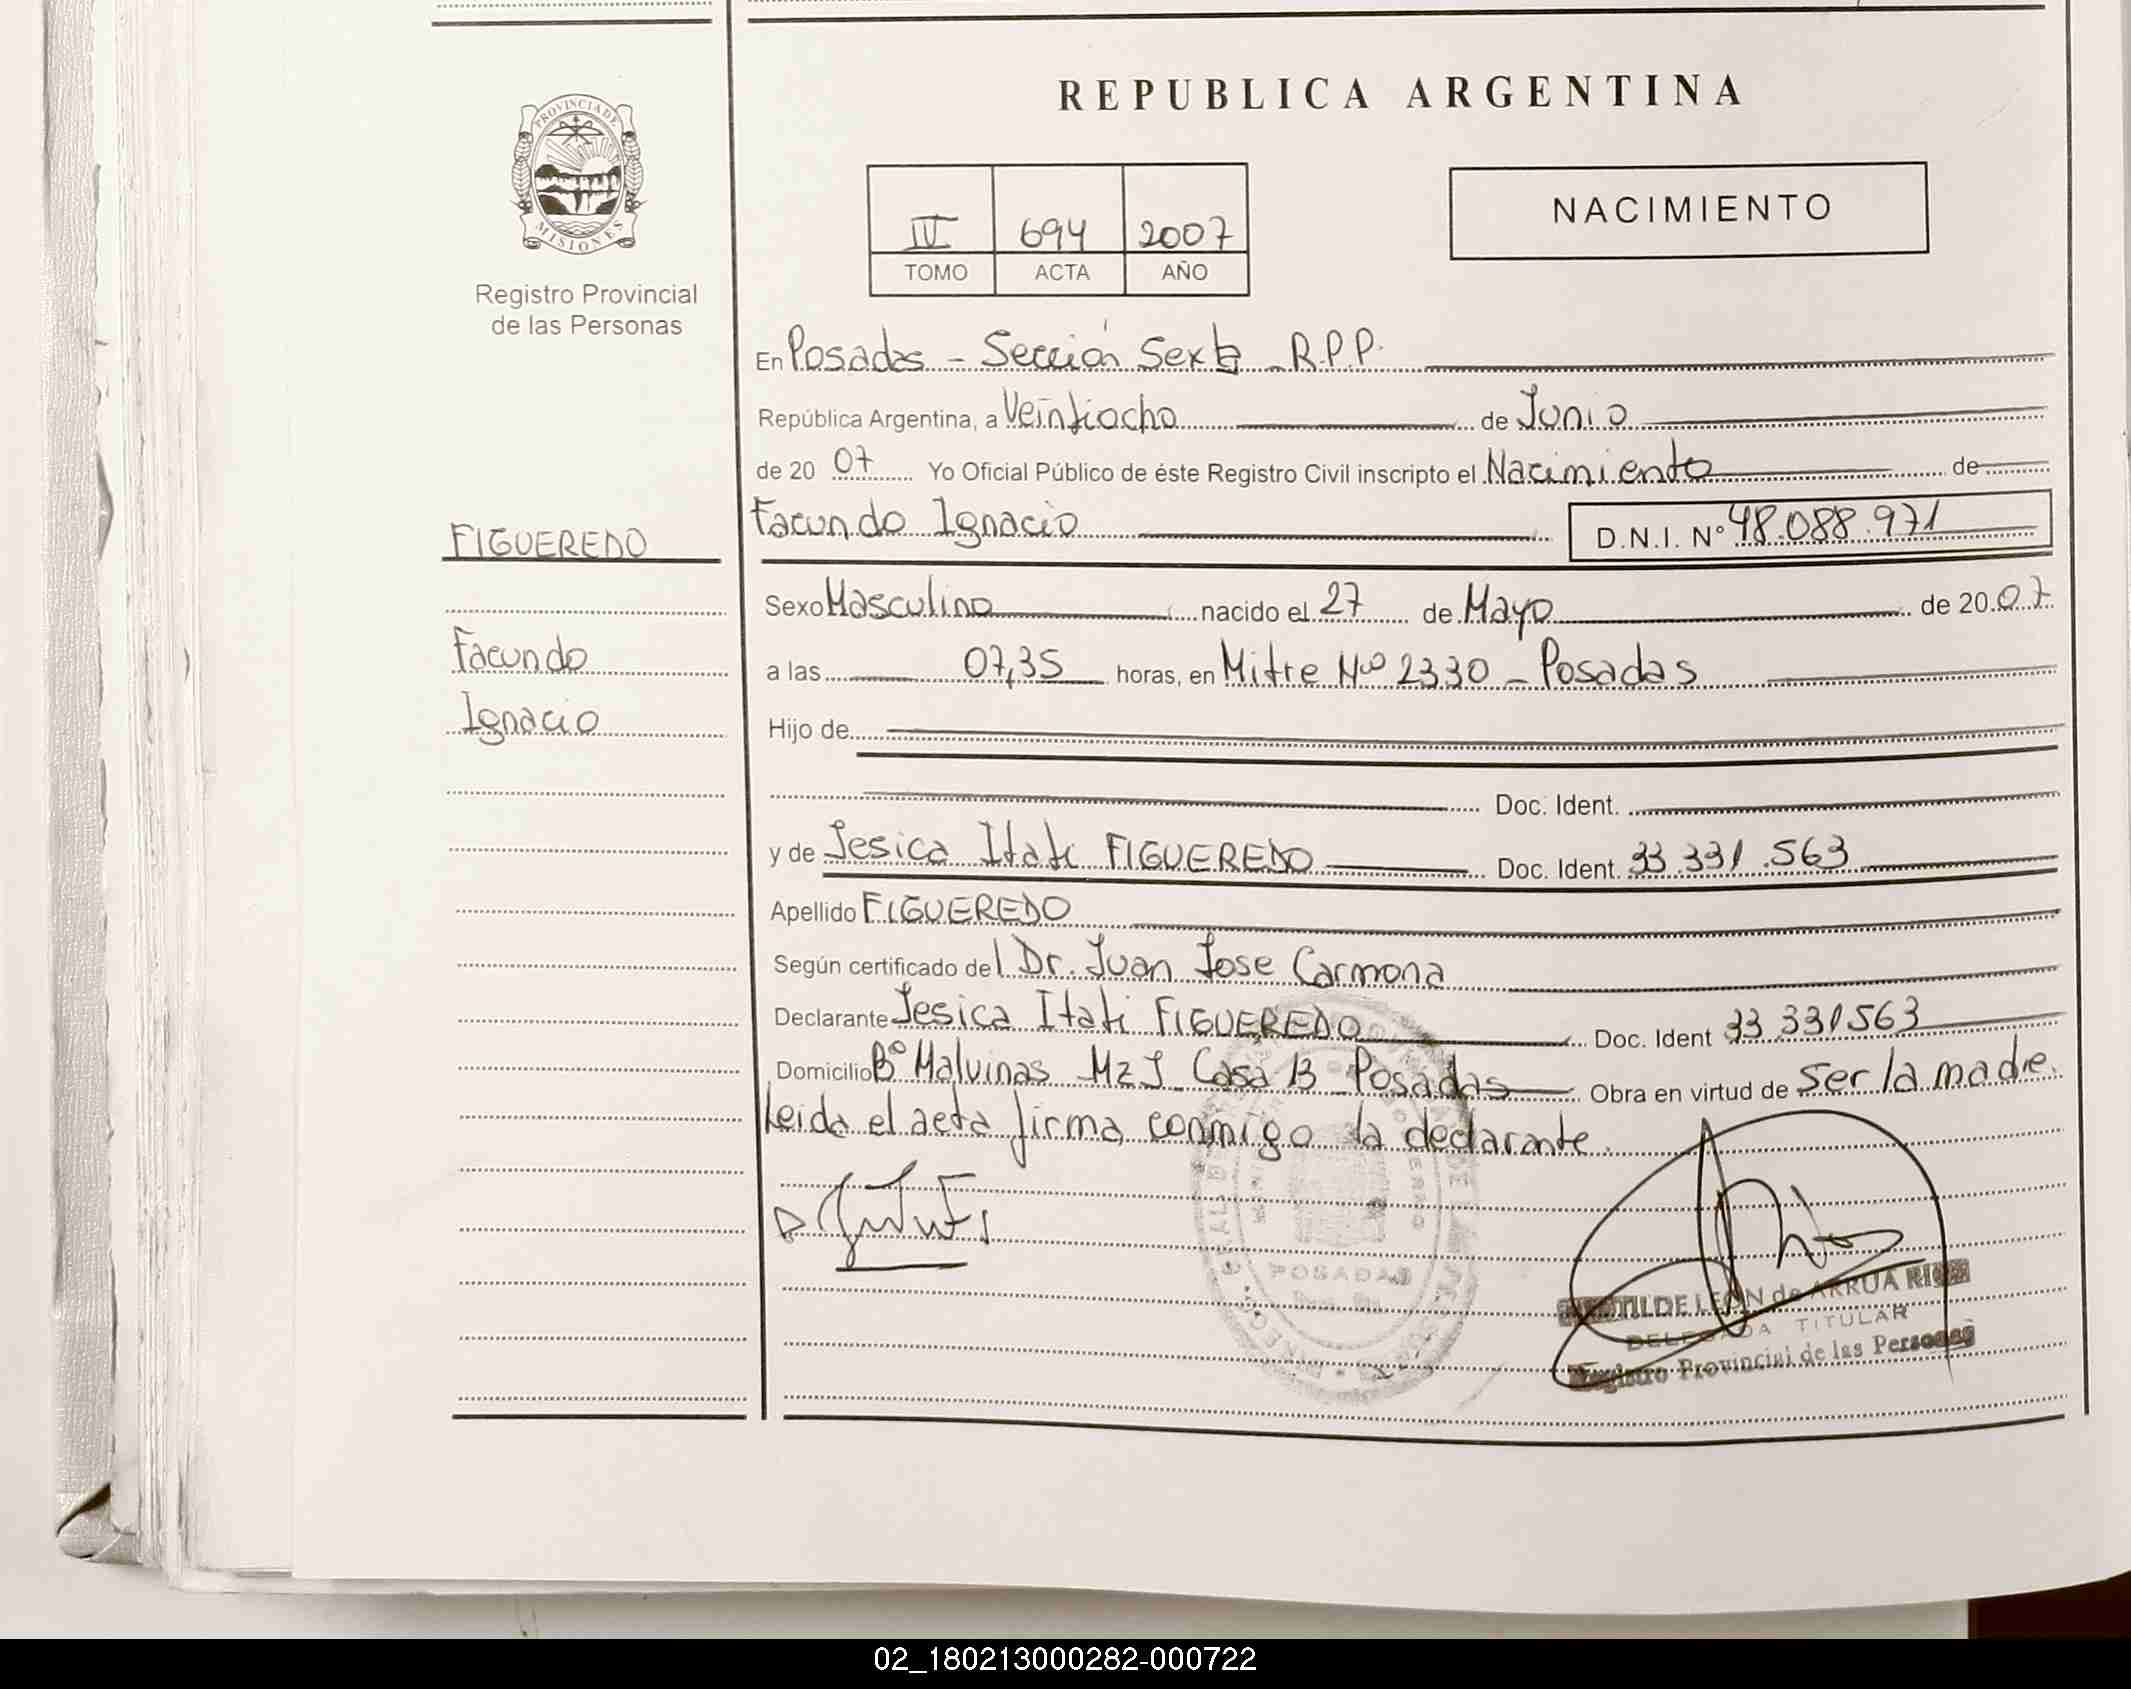 PROVINCIA DE
MISIONES
Registro Provincial
de las Personas
REPUBLICA ARGENTINA
IV 694 2007
TOMO ACTA AÑO
NACIMIENTO
En Posadas - Sección Sexta - R.P.P.
República Argentina, a Veintiocho de Junio
de 20 07 Yo Oficial Público de éste Registro Civil inscripto el Nacimiento de
Facundo Ignacio D.N.I. N° 48.088.971
FIGUEREDO
Facundo
Ignacio
Sexo Masculino nacido el 27 de Mayo de 20 07
a las 07,35 horas, en Mitre Nº 2330 - Posadas
Hijo de
Doc. Ident.
y de Jesica Itati FIGUEREDO Doc. Ident. 33.331.563
Apellido FIGUEREDO
Según certificado del Dr. Juan Jose Carmona
Declarante Jesica Itati FIGUEREDO Doc. Ident 33 331563
Domicilio Bº Malvinas Mz J Casa 13 Posadas Obra en virtud de ser la madre.
Leida el acta firma conmigo la declarante.
POSADAS
LEON de ARRUA
DELEGADA TITULAR
Registro Provincial de las Personas
02_180213000282-000722